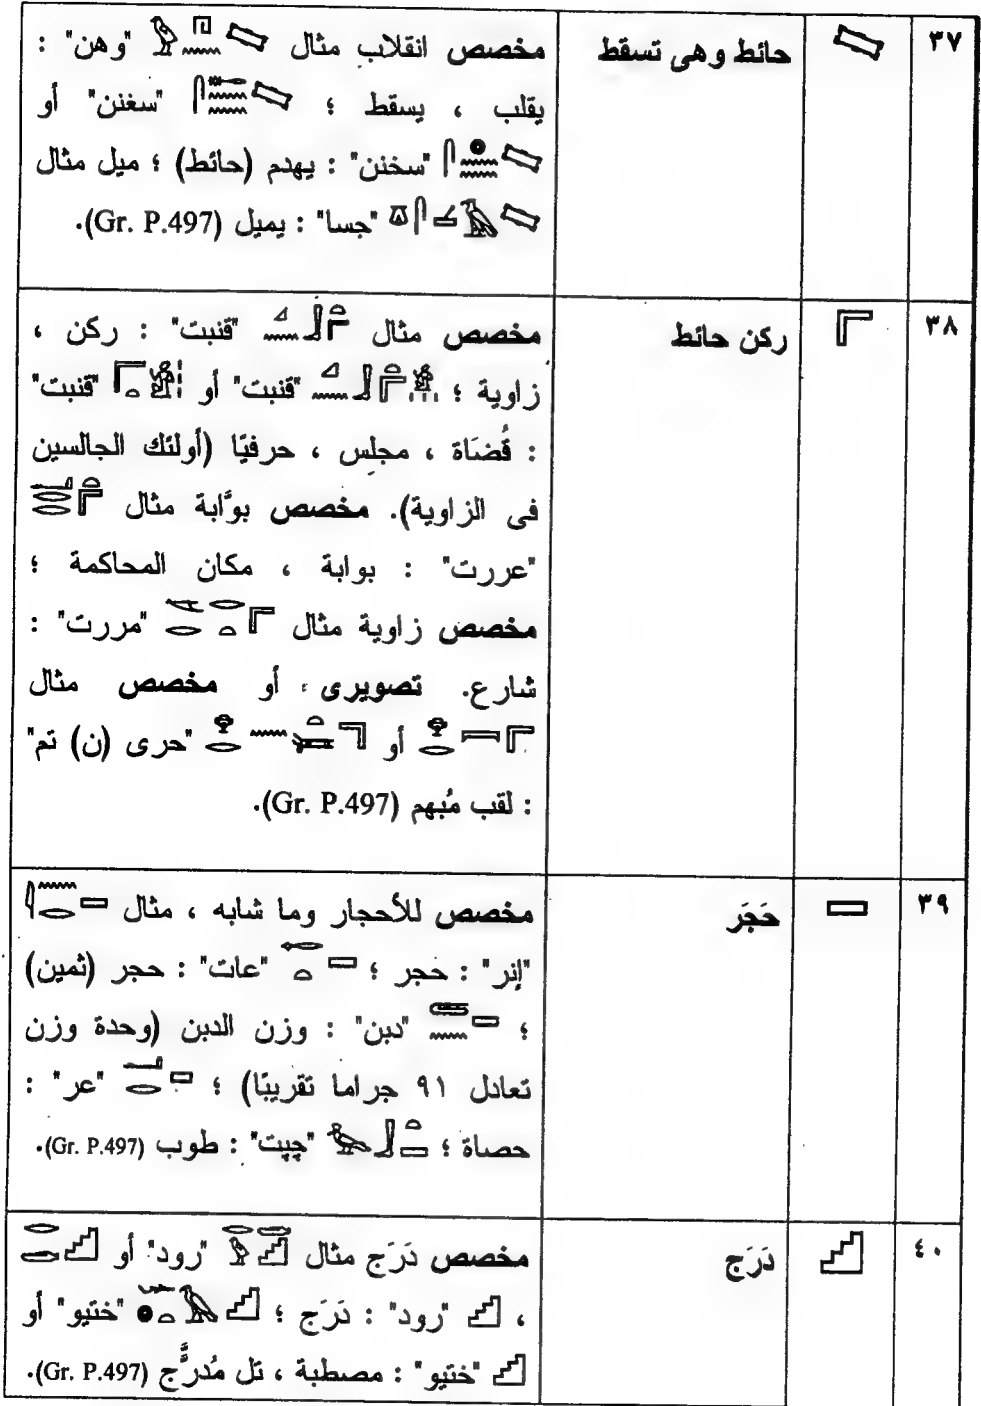 ٣٧ حائط وهى تسقط مخصص انقلاب مثال "وهن" :
يقلب ، يسقط ؛ "سغنن" أو
"سخنن" : يهدم (حائط) ؛ ميل مثال
"جسا" : يميل (Gr. P.497).
٣٨ ركن حائط مخصص مثال "قنبت" : ركن ،
زاوية ؛ "قنبت" أو "قنبت"
: قُضَاة ، مجلس ، حرفيًا (أولئك الجالسين
فى الزاوية). مخصص بوَّابة مثال
"عررت" : بوابة ، مكان المحاكمة ؛
مخصص زاوية مثال "مررت" :
شارع. تصويرى ، أو مخصص مثال
أو "حرى (ن) تم"
: لقب مُبهم (Gr. P.497).
٣٩ حَجَر مخصص للأحجار وما شابه ، مثال
"إنر" : حجر ؛ "عات" : حجر (ثمين)
؛ "دبن" : وزن الدبن (وحدة وزن
تعادل ٩١ جراما تقريبًا) ؛ "عر" :
حصاة ؛ "چبت" : طوب (Gr. P.497).
٤٠ دَرَج مخصص دَرَج مثال "رود" أو
، "رود" : دَرَج ؛ "ختيو" أو
"ختيو" : مصطبة ، تل مُدرَّج (Gr. P.497).